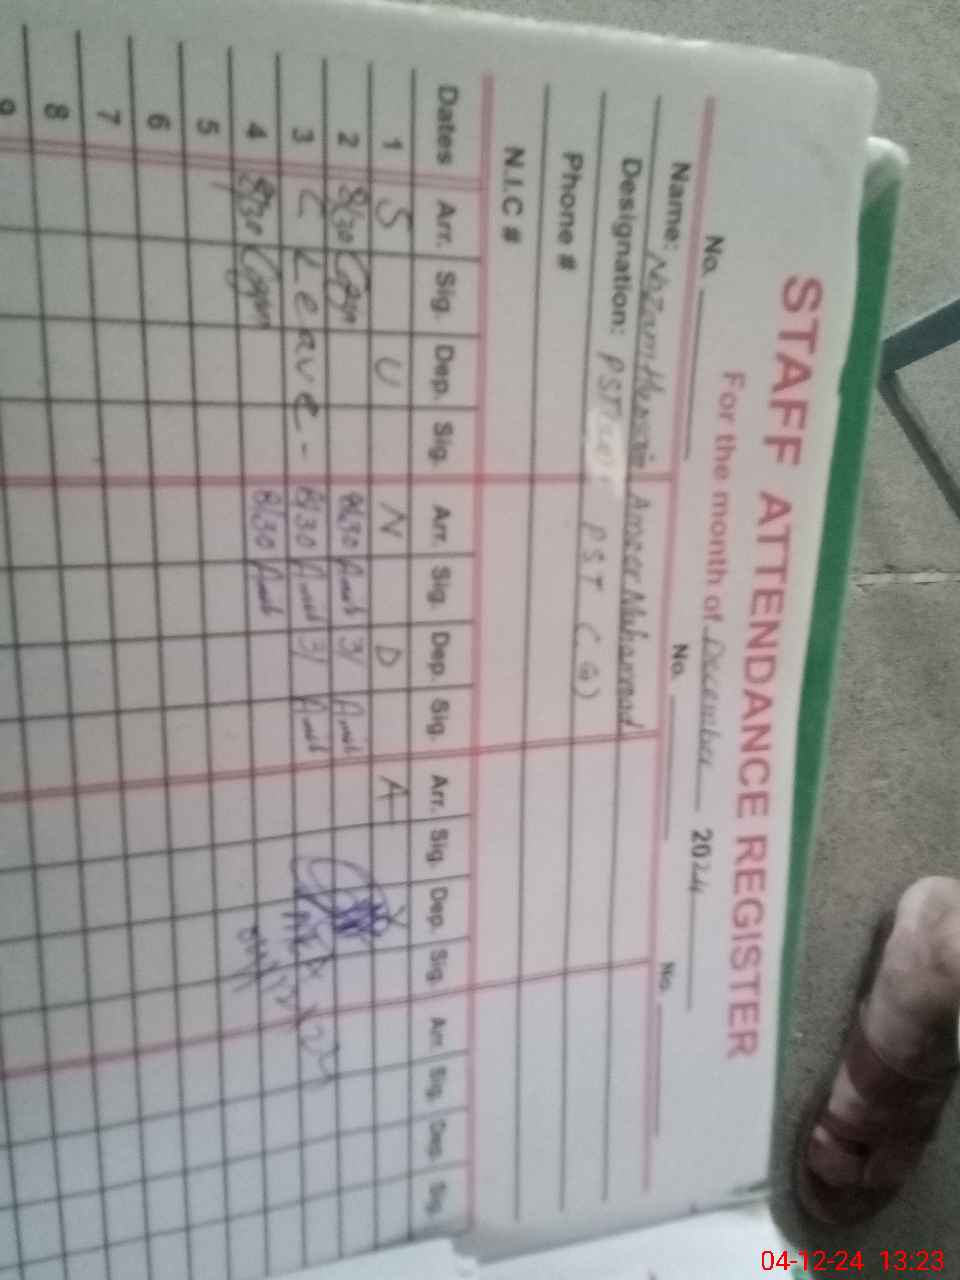 STAFF ATTENDANCE REGISTER
For the month of December 2024
No. No. No.
Name: Nizam Hussain Ameer Muhammad
Designation: PST PST (G)
Phone #
N.I.C #
Dates Arr. Sig. Dep. Sig. Arr. Sig. Dep. Sig. Arr. Sig. Dep. Sig. Arr. Sig. Dep. Sig.
1 S U N D A Y
2 8/30 8/30 3/
3 C Leave - 8/30 3/
4 8/30 8/30
5
6
7
8
9
04-12-24 13:23